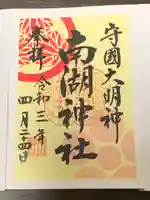 守國大明神
南湖神社
奉拝 令和三年
四月二十四日